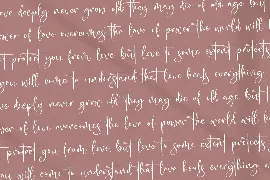 love deeply never grow old they may die of old age but
power of love overcomes the love of power the world will
protect you from love but love to some extent protects
you will come to understand that love heals everything
love deeply never grows old they may die of old age but
power of love overcomes the love of power the world will
protect you from love but love to some extent protects
you will come to understand that love heals everything